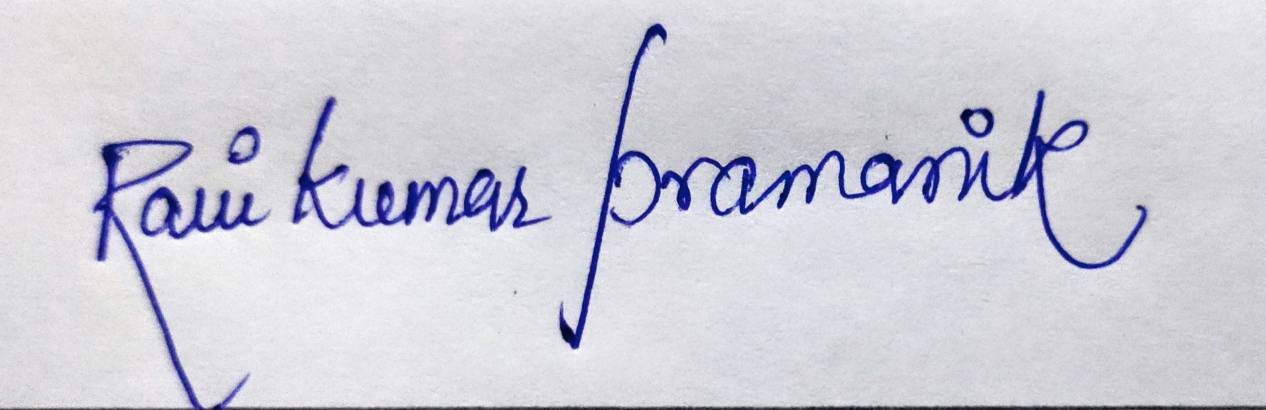 Ravi Kumar Pramanik